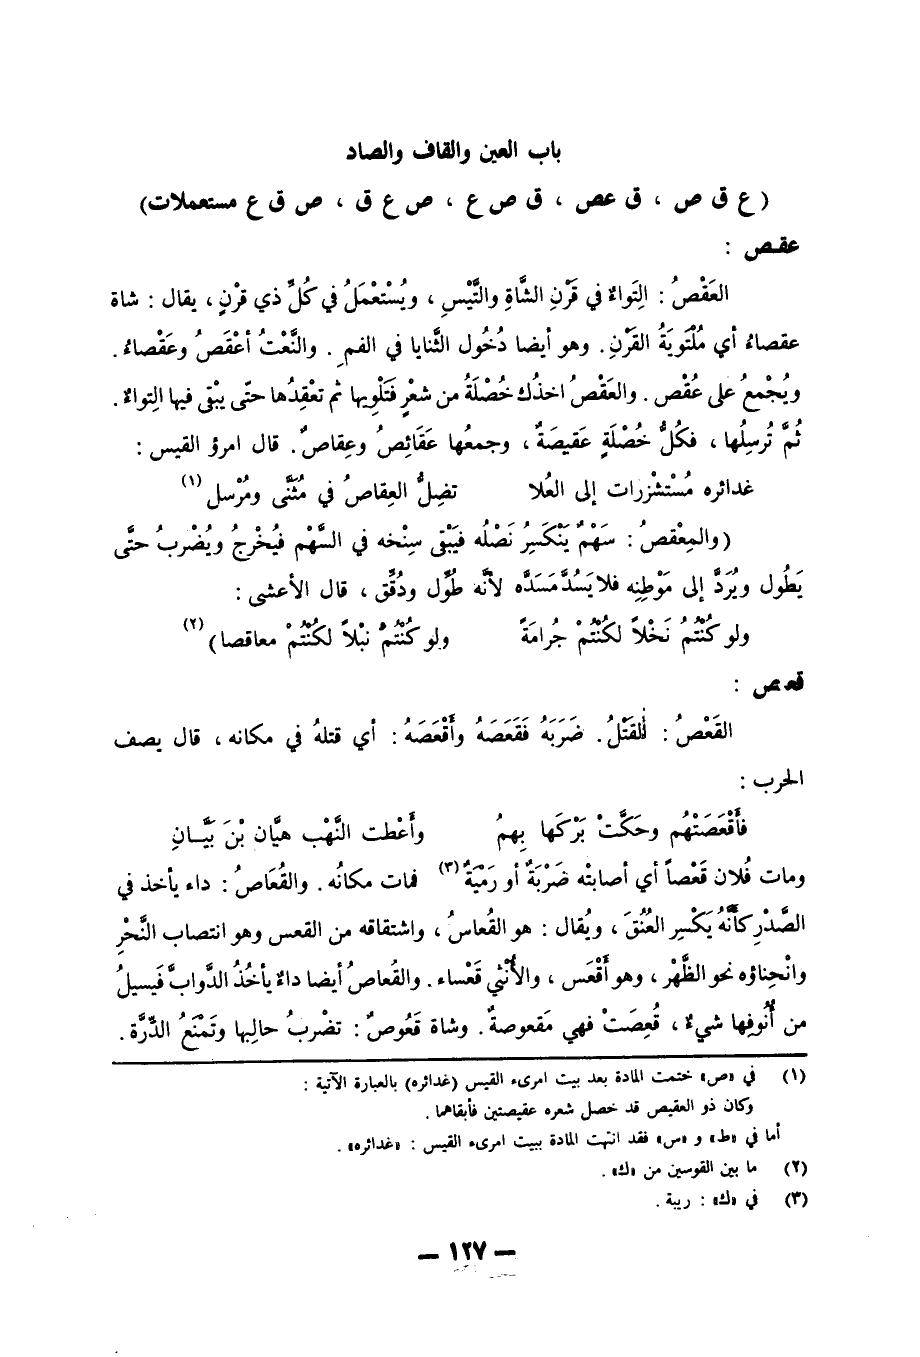 باب العين والقاف والصاد
( ع ق ص ، ق عص ، ق ص ع ، ص ع ق ، ص ق ع مستعملات)
عقص :
العَقْصُ : الِتَواءٌ في قَرْنِ الشَّاةِ والتَّيْسِ ، ويُسْتَعْمَلُ في كُلِّ ذي قرْنٍ ، يقال : شاة
عقصاءُ أي مُلْتَوِيَةُ القَرْنِ. وهو أيضا دُخُول الثَّنايا في الفمِ . والنَّعْتُ أعْقَصُ وعَقْصاءُ .
ويُجْمعُ على عُقْص . والعَقْصُ اخذُك خُصْلَةُ من شعْرٍ فَتَلْوِيها ثم تعْقِدُها حتّى يبْقى فيها الِتواءٌ .
ثُمَّ تُرسِلُها ، فكلُّ خُصْلَةٍ عَقيصَةٌ ، وجمعُها عَقَائِصُ وعِقاصٌ. قال امرؤ القيس :
غدائره مُسْتشْزِرات إلى العُلا تضِلُّ العِقاصُ في مُثَنَّى ومُرْسل (١)
(والمِعْقصُ : سَهْمٌ يَنْكَسِرُ نَصْلُه فيَبْقى سِنْخه في السَّهْم فيُخْرجُ ويُضْربُ حتَّى
يَطُول ويُرَدَّ إلى مَوْطِنِه فلا يَسُدَّ مَسَدَّه لأنَّه طُوِّل ودُقِّق ، قال الأعشى :
ولو كُنْتُمُ نَخْلاً لكُنْتُمْ جُرامَةً ولو كُنْتُمُ نبْلاً لكُنْتُمْ معاقصا) (٢)
قعص :
القَعْصُ : القَتْلُ. ضَرَبَهُ فَقَعَصَهُ وأَقْعَصَهُ : أي قتلهُ في مكانه ، قال يصف
الحرب :
فأَقْعَصَتْهُم وحَكَّتْ بَرْكَها بِهمُ وأَعْطت النَّهْب هيَّان بْنَ بَيَّــانِ
ومات فُلان قَعْصاً أي أصابتْه ضَرْبَةٌ أو رَمْيَةٌ (٣) فمات مكانُه . والقُعَاصُ : داء يأخذ في
الصَّدْرِ كأنَّهُ يَكْسِر العُنُقَ ، ويُقال : هو القُعاسُ ، واشتقاقه من القعس وهو انتصاب النَّحْرِ
وانْحِناؤه نحو الظَّهْر ، وهو أقْعَس ، والأنْثي قَعْساء . والقُعاصُ أيضا داءٌ يأخُذُ الدَّوابَّ فَيسيلُ
من أُنُوفِها شيءٌ ، قُعِصَتْ فهي مَقعوصةٌ. وشاة قَعُوصٌ : تضْربُ حالِبها وتَمْنَعُ الدِّرَّة .
(١) في «ص» ختمت المادة بعد بيت امرىء القيس (غدائره) بالعبارة الآتية :
وكان ذو العقيص قد خصل شعره عقيصتين فأبقاهما .
أما في «ط» و «س» فقد انتهت المادة ببيت امرىء القيس : «غدائره» .
(٢) ما بين القوسين من «ك» .
(٣) في «ك» : ريبة .
— ١٢٧ —